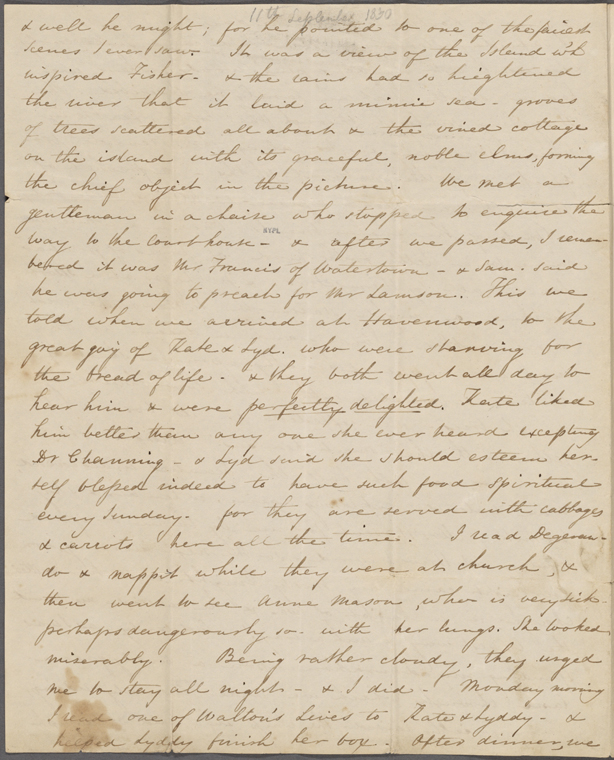 11th September 1830
& well he might; for he pointed to one of the fairest
scenes I ever saw. It was a view of the Island wh
inspired Fisher - & the rains had so heightened
the river that it laid a mimic sea - groves
of trees scattered all about & the vined cottage
on the island with its graceful, noble elms, forming
the chief object in the picture. We met a
gentleman in a chaise who stopped to enquire the
way to the Court house - & after we passed, I remem
NYPL
bered it was Mr Francis of Watertown - & Sam. said
he was going to preach for Mr Lamson. This we
told when we arrived at Havenwood, to the
great joy of Kate & Lyd. who were starving for
the bread of life - & they both went all day to
hear him & were perfectly delighted. Kate liked
him better than any one she ever heard excepting
Dr Channing - & Lyd said she should esteem her-
self blessed indeed to have such food spiritual
every Sunday. for they are served with cabbages
& carrots here all the time. I read Degeran-
do & napp'd while they were at church, &
then went to see Anne Mason, who is very sick -
perhaps dangerously so - with her lungs. She looked
miserably. Being rather cloudy, they urged
me to stay all night - & I did - Monday morning
I read one of Walton's Lives to Kate & Lyddy - &
helped Lyddy finish her box. After dinner, we